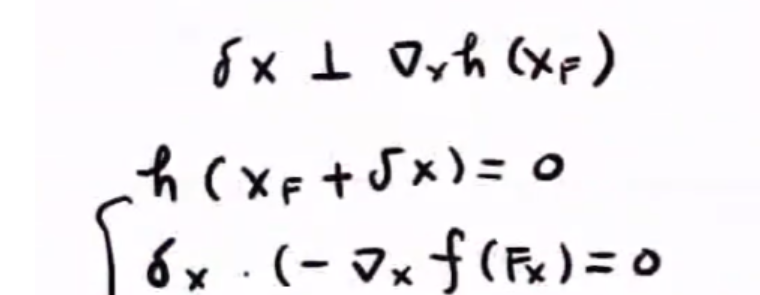 δx ⊥ ∇ₓh (x_F)
h (x_F + δx) = 0
δₓ · (- ∇ₓ f (Fₓ) = 0